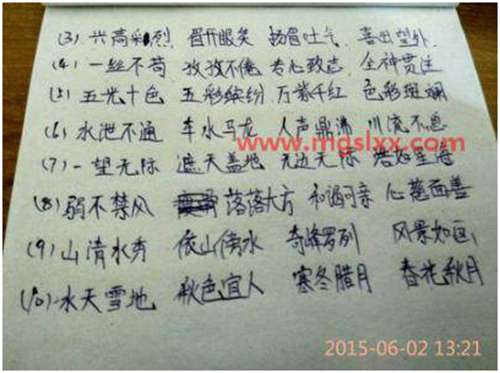 (3) 兴高彩烈 眉开眼笑 扬眉吐气 喜出望外
(4) 一丝不苟 孜孜不倦 专心致志 全神贯注
(5) 五光十色 五彩缤纷 万紫千红 色彩斑斓
(6) 水泄不通 车水马龙 人声鼎沸 川流不息
www.mgslxx.com
(7) 一望无际 遮天盖地 无边无际
(8) 弱不禁风 落落大方 和蔼可亲 心慈面善
(9) 山清水秀 依山傍水 奇峰罗列 风景如画
(10) 水天雪地 秋色宜人 寒冬腊月 春花秋月
2015-06-02 13:21